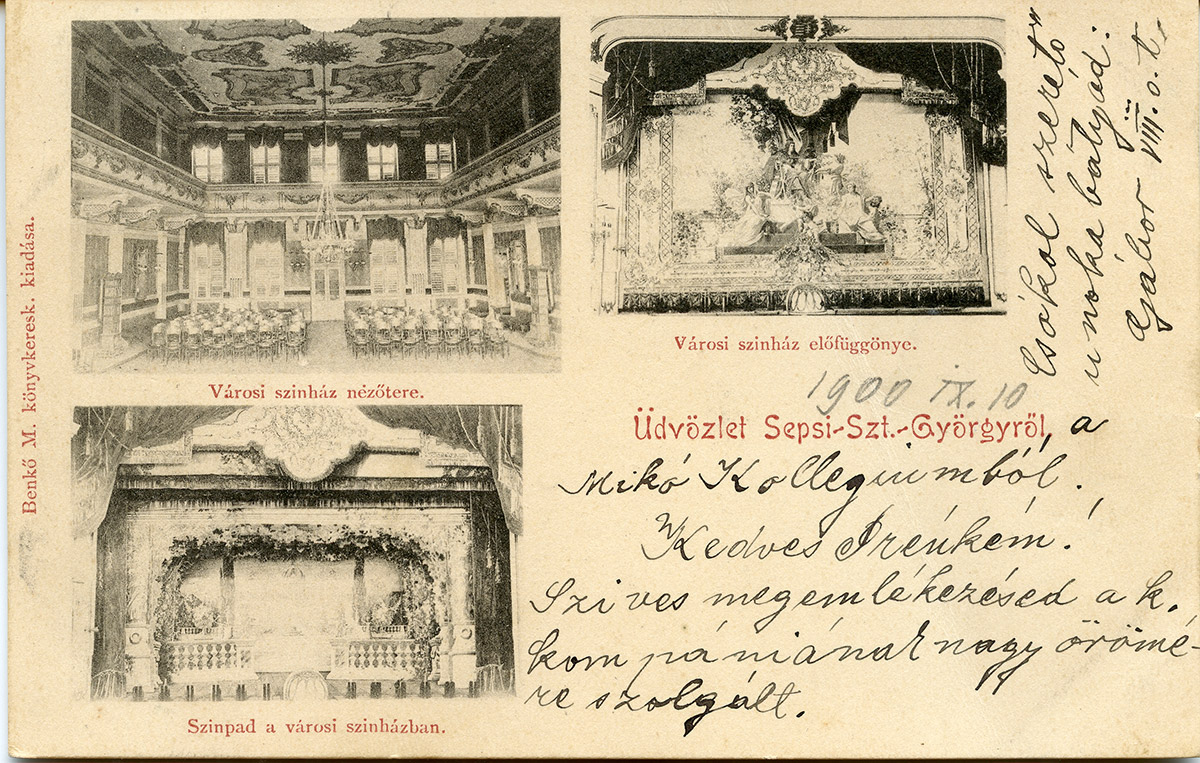 Benkő M. könyvkeresk. kiadása.
Városi szinház nézőtere.
Városi szinház előfüggönye.
Szinpad a városi szinházban.
1900 IX. 10
Üdvözlet Sepsi-Szt.-Györgyről, a
Mikó Kollegiumból.
Kedves Irénkém!
Szives megemlékezésed a k.
kompániának nagy örömé-
re szolgált.
Csókol szerető
unoka bátyád:
Gábor VIII. o. t.